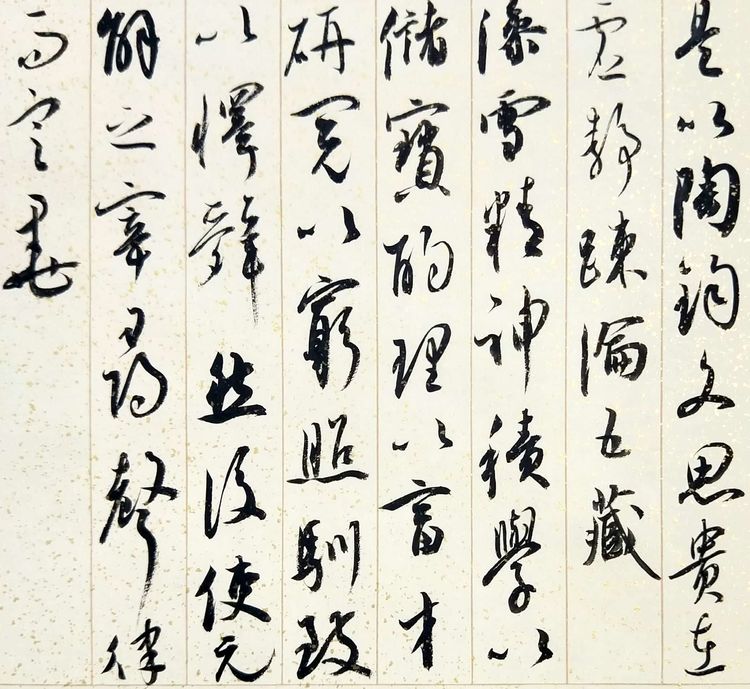 是以陶鈞文思貴在
虛靜踈瀹五藏
澡雪精神積學以
儲寶酌理以富才
研閱以窮照馴致
以懌辭然後使元
解之宰尋聲律
而定墨